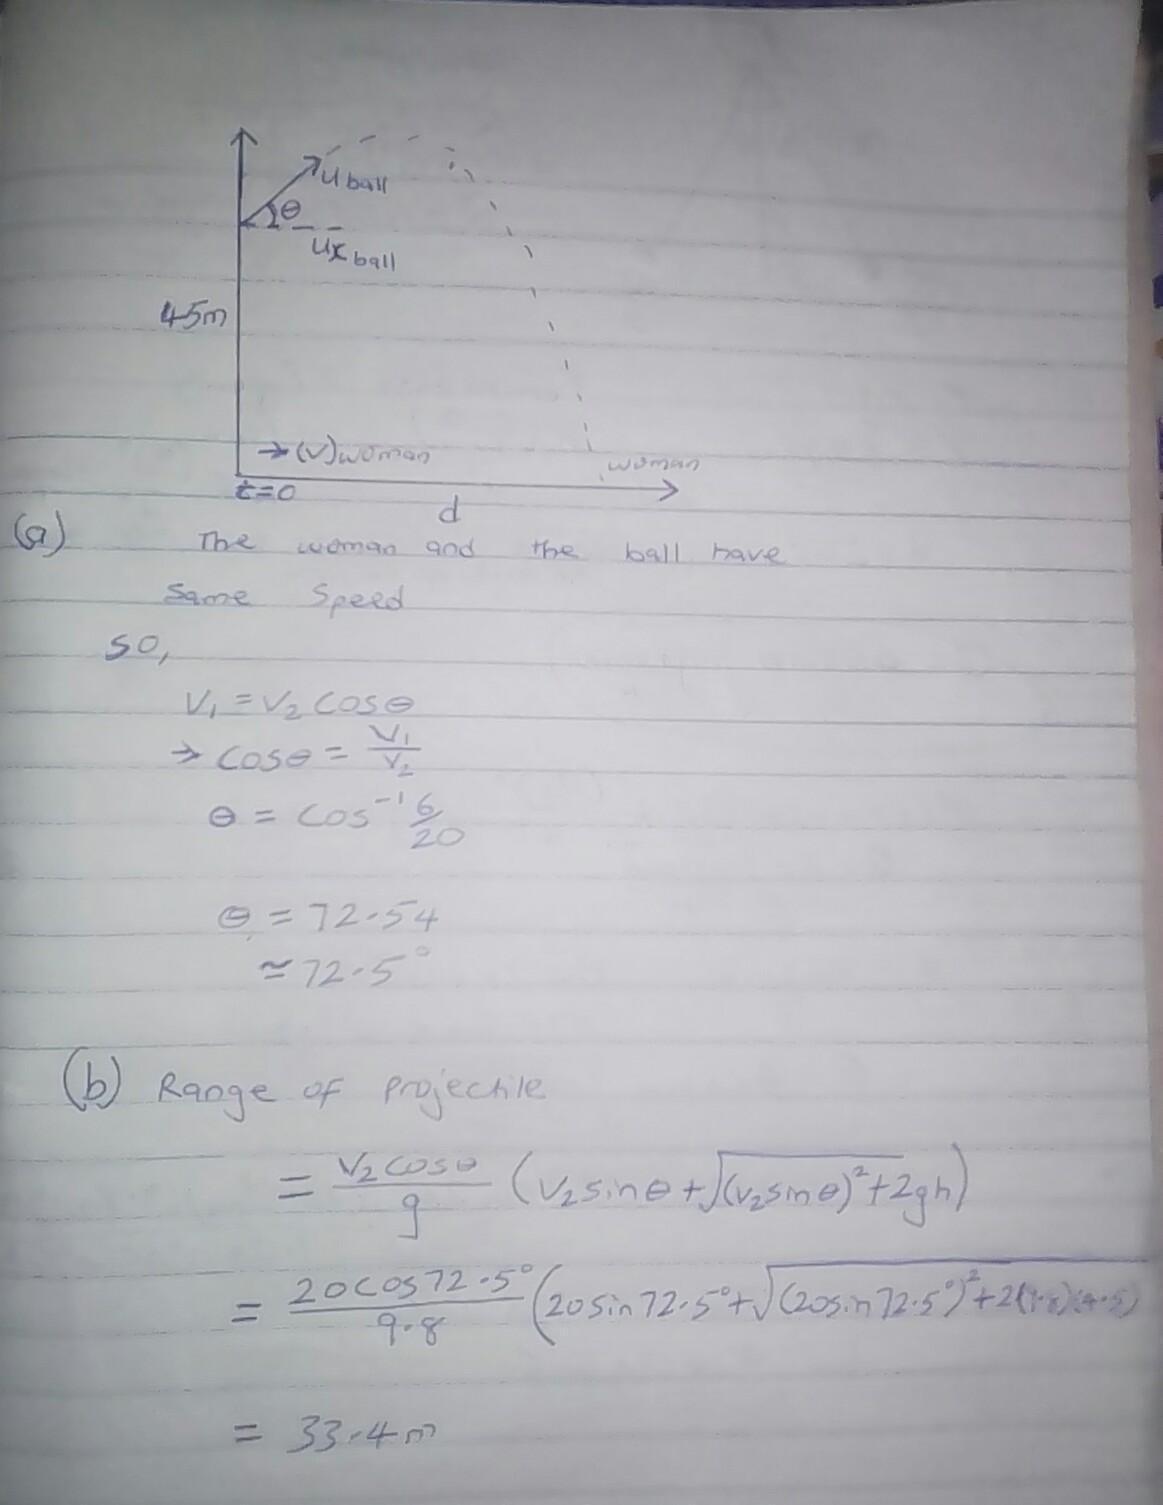 u ball
θ
ux ball
45m
→ (v) woman
woman
t=0
d
(a) The woman and the ball have
Same Speed
so,
V₁ = V₂ cosθ
→ cosθ = V₁/V₂
θ = cos⁻¹ 6/20
θ = 72.54
≃ 72.5°
(b) Range of projectile
= V₂ cosθ/g (V₂sinθ + √(V₂sinθ)² + 2gh)
= 20cos72.5°/9.8 (20sin72.5° + √(20sin72.5°)² + 2(9.8)(45)
= 33.4m